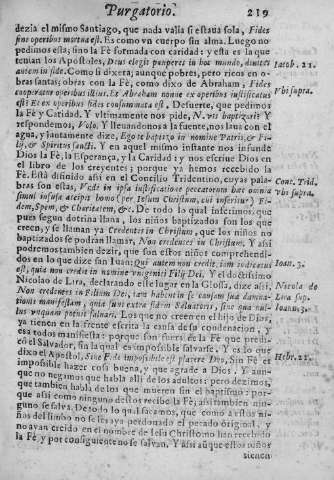 Purgatorio. 219
dezia el mismo Santiago, que nada valia si estaua sola, Fides
sine operibus mortua est. Es como vn cuerpo sin alma. Luego no
pedimos esta, sino la Fè formada con caridad: y esta es la que
tenian los Apostoles, Deus elegit pauperes in hoc mundo, diuites
autem in fide. Como si dixera; aunque pobres, pero ricos en o-
bras santas: obras con la Fè, como dixo de Abraham, Fides
cooperator operibus illius. Ex Abraham nonne ex operibus iustificatus
est: Et ex operibus fides consummata est. Desuerte, que pedimos la
Fè y Caridad. Y vltimamente nos pide, N. vis baptizari? Y
respondemos, Volo. Y lleuandonos a la fuente, nos laua con el
agua, y santamente dize, Ego te baptizo in nomine Patris, & Fi-
lij, & Spiritus sancti. Y en aquel mismo instante nos infunde
Dios la Fè, la Esperança, y la Caridad: y nos escriue Dios en
el libro de los creyentes; porque ya hemos recebido la
Fè. Està difinido assi en el Concilio Tridentino, cuyas pala-
bras son estas, Vnde in ipsa iustificatione peccatorum hæc omnia
simul infusa accipit homo (per Iesum Christum, cui inseritur) Fi-
dem, Spem, & Charitatem, &c. De todo lo qual inferimos, que
pues segun dotrina llana, los niños baptizados son los que
creen, y se llaman ya Credentes in Christum, que los niños no
baptizados se podran llamar, Non credentes in Christum. Y assi
podremos tambien dezir, que son estos niños comprehendi-
dos en lo que dize san Iuan; Qui autem non credit, iam iudicatus
est, quia non credit in nomine vnigeniti Filij Dei. Y el doctissimo
Nicolao de Lira, declarando este lugar en la Glossa, dize assi,
Non credentes in Filium Dei, iam habent in se causam suæ damna-
tionis manifestam, quia sunt extra fidem Saluatoris, sine qua nul-
lus vnquam potuit saluari. Los que no creen en el hijo de Dios,
ya tienen en la frente escrita la causa de su condenacion, y
essa todos manifiesta: porque son fuera de la Fè que predi-
cò el Saluador, sin la qual es impossible saluarse. Y es lo que
dixo el Apostol, Sine Fide impossibile est placere Deo. Sin Fè es
impossible hazer cosa buena, y que agrade a Dios. Y aun-
que no negamos que habla alli de los adultos: pero dezimos,
que tambien habla de los que mueren sin el baptismo: por-
que assi como ninguno destos recibe la Fè; assi tambien nin-
guno se salua. De todo lo qual sacamos, que como a estos ni-
ños del limbo no se les aya perdonado el pecado original, y
no ayan creido en el nombre de Iesu Christo, ni han recebido
la Fè, y por consiguiente no se saluan. Y assi aũque estos niños
tienen
Iacob. 21.
Vbi supra.
Conc. Trid.
Vbi supra.
Ioan. 3.
Nicola de
Lira sup.
Ioann. 3.
Hebr. 11.